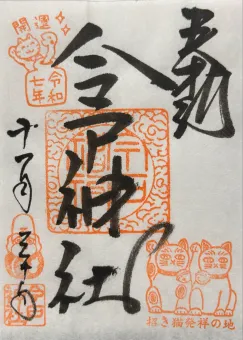 奉拝
今戸神社
開運
令和
七年
十一月三十日
招き猫発祥の地